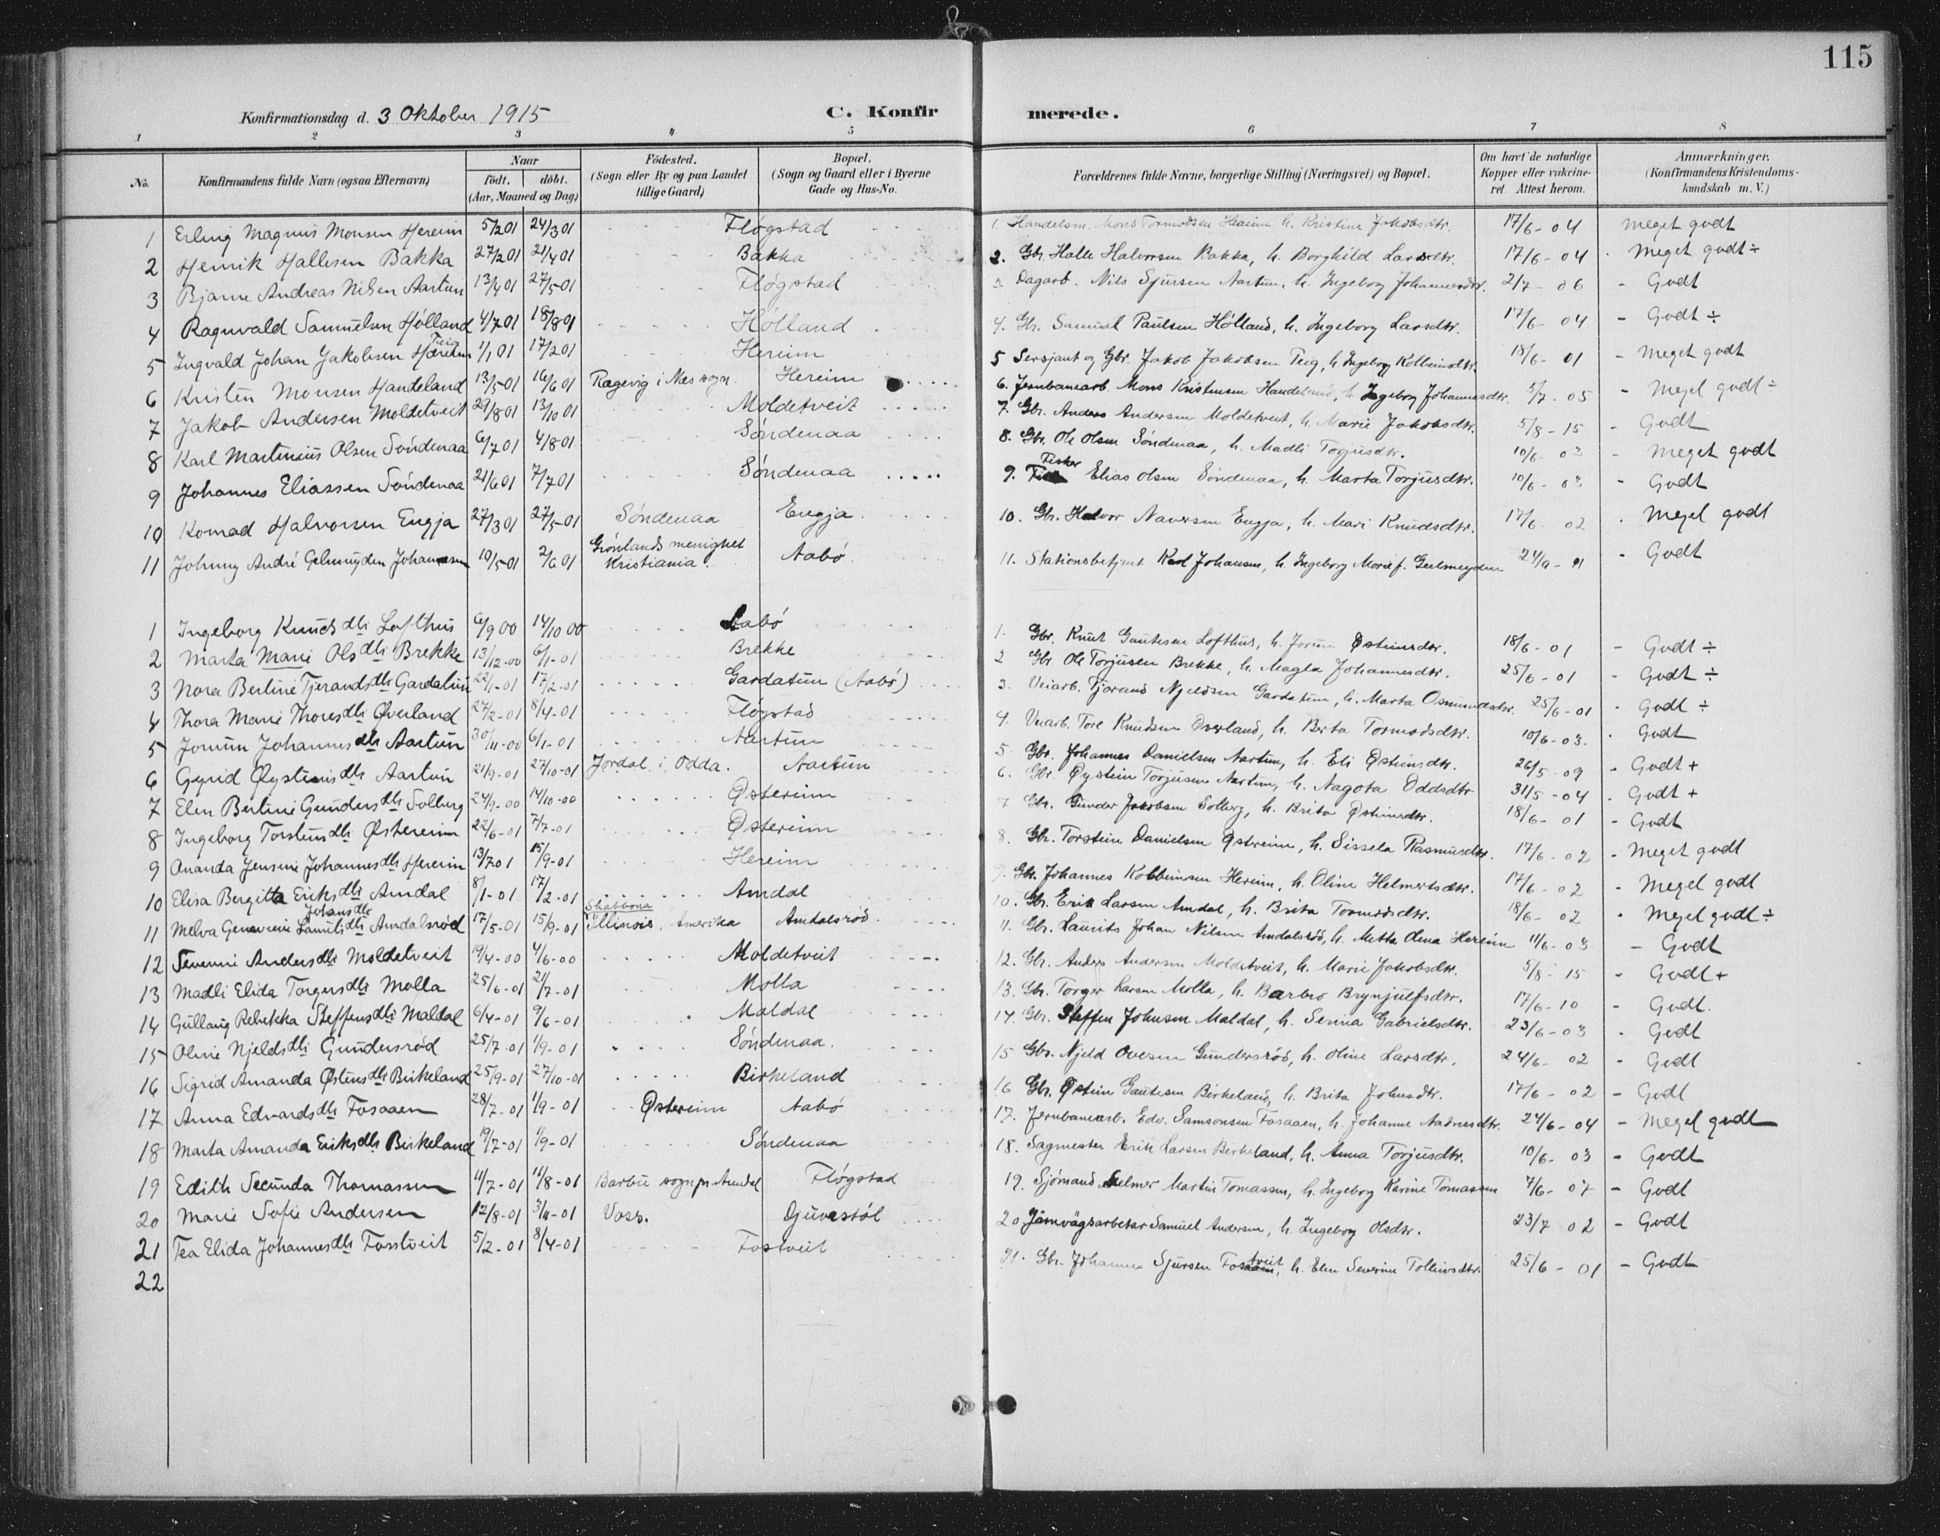 115
Konfirmationsdag d. 3 Oktober 1915 C. Konfirmerede.
1 2 3 4 5 6 7 8
No. Konfirmandens fulde Navn (ogsaa Efternavn) Naar födt. döbt. (Aar, Maaned og Dag) Födested. (Sogn eller By og paa Landet tillige Gaard) Bopæl. (Sogn og Gaard eller i Byerne Gade og Hus-No. Forældrenes fulde Navne, borgerlige Stilling (Næringsvei) og Bopæl. Om havt de naturlige Kopper eller vaccineret. Attest herom. Anmærkninger. (Konfirmandens Kristendomskundskab m. V.)
1 Erling Magnus Monsen Hereim 5/2 01 24/3 01 Fløgstad 1. Handelsm. Mons Tormodsen Hereim, h. Kristine Jakobsdtr. 17/6 - 04 Meget godt
2 Henrik Hallesen Bakka 27/2 01 21/4 01 Bakka 2. Gbr. Halle Halvorsen Bakka, h. Borghild Larsdtr. 17/6 - 04 Meget godt ÷
3 Bjarne Andreas Nilsen Aartun 13/4 01 27/5 01 Fløgstad 3 Dagarb. Nils Sjursen Aartun, h. Ingeborg Johannesdtr. 2/7 - 06 - Godt
4 Ragnvald Samuelsen Hølland 4/7 01 18/8 01 Hølland 4. Gbr. Samuel Paulsen Hølland, h. Ingeborg Larsdtr. 17/6 - 04 - Godt ÷
5 Ingvald Johan Jakobsen Teig 1/1 01 17/2 01 Hereim 5 Sersjant og Gbr. Jakob Jakobsen Teig, h. Ingeborg Kolbeinsdtr. 18/6 - 01 - Meget godt
6 Kristen Monsen Handeland 13/5 01 16/6 01 Ragevig i Nes sogn. Hereim 6. Jernbanearb. Mons Kristensen Handeland, h. Ingeborg Johannesdtr. 5/7 - 05 - Meget godt ÷
7 Jakob Andersen Moldetveit 29/8 01 13/10 01 Moldetveit 7. Gbr. Anders Andersen Moldetveit, h. Marie Jakobsdtr. 5/8 - 15 - Godt
8 Karl Martinius Olsen Søndenaa 6/7 01 4/8 01 Søndenaa 8. Gbr. Ole Olsen Søndenaa, h. Madli Torjusdtr. 10/6 - 03 - Meget godt
9 Johannes Eliassen Søndenaa 21/6 01 7/7 01 Søndenaa 9. Fisker Elias Olsen Søndenaa, h. Marta Torjusdtr. 10/6 - 03 - Godt
10 Konrad Halvorsen Engja 27/3 01 27/5 01 Søndenaa Engja 10. Gbr. Halvor Naversen Engja, h. Mari Knudsdtr. 17/6 - 02 Meget godt
11 Johnny André Gelmuyden Johansen 10/5 01 2/6 01 Grønlands menighet Kristiania. Aabø 11. Stationsbetjent Karl Johansen, h. Ingeborg Marie f. Geelmuyden - Godt
1 Ingeborg Knudsdtr Lofthus 6/9 00 14/10 00 Aabø 1. Gbr. Knut Gautesen Lofthus, h. Jorun Østeinsdtr. 18/6 - 01 - Godt ÷
2 Marta Marie Olsdtr Brekke 13/12-00 6/1-01 Brekke 2 Gbr. Ole Torjusen Brekke, h. Magla Johannesdtr. 25/6 - 01 - Godt ÷
3 Nora Bertine Tjerandsdtr Gardatun 22/1-01 17/2-01 Gardatun (Aabø) 3. Veiarb. Tjerand Njeldsen Gardatun, h. Marta Osmundsdtr. 25/6 - 01 Godt ÷
4 Thora Marie Thoresdtr Øverland 27/2-01 8/4-01 Fløgstad 4. Veiarb. Tore Knudsen Øverland, h. Brita Tormodsdtr. 10/6 - 03. Godt
5 Jorun Johannesdtr Aartun 30/11-00 6/1-01 Aartun 5. Gbr. Johannes Danielsen Aartun, h. Eli Østeinsdtr. 26/5 - 09 - Godt +
6 Gyrid Øysteinsdtr Aartun 21/9-01 27/10-01 Jordal i Odda. Aartun 6. Gbr. Øystein Torjusen Aartun, h. Aagota Oddsdtr 31/5 - 04 Godt +
7 Elen Bertine Gundersdtr Solberg 24/9-00 14/10-00 Østereim 7. Gbr. Gunder Jakobsen Solberg, h. Brita Østeinsdtr. 18/6 - 01 - Godt
8 Ingeborg Torsteinsdtr Østereim 22/6-01 7/7-01 Østereim 8. Gbr. Torstein Danielsen Østreim, h. Sissela Rasmusdtr. 17/6 - 02 - Meget godt
9 Ananda Jensine Johannesdtr Hereim 13/7 01 15/9-01 Hereim 9. Gbr. Johannes Kolbeinsen Hereim, h. Oline Helmertsdtr. 17/6 - 02 Meget godt
10 Elisa Bergitta Eriksdtr Amdal 8/1-01 17/2-01 Amdal 10. Gbr. Erik Larsen Amdal, h. Brita Tormodsdtr. 18/6 - 02 Meget godt ÷
11 Melva Genevieve Lauritsdtr Johansdtr Amdalsrød 17/5-01 15/9-01 Shabbona Illinois, Amerika Amdalsrød 11. Gbr. Laurits Johan Nilsen Amdalsrød, h. Metta Olena Hereim 11/6 - 03 - Godt
12 Severine Andersdtr Moldetveit 19/4-00 4/6-00 Moldetveit 12. Gbr. Anders Andersen Moldetveit, h. Marie Jakobsdtr. 5/8 - 15 - Godt +
13 Madli Elida Torgersdtr Molla 25/6-01 21/7-01 Molla 13. Gbr. Torger Larsen Molla, h. Barbro Brynjulfsdtr. 17/6 - 10 - Godt.
14 Gullaug Rebekka Steffensdtr Maldal 6/4-01 9/6-01 Maldal 14. Gbr. Steffen Johnsen Maldal, h. Serina Gabrielsdtr. 23/6 - 03 - Godt
15 Oline Njeldsdtr Gundersrød 25/7-01 1/9-01 Søndenaa. 15 Gbr. Njeld Ovesen Gundersrød, h. Oline Larsdtr. 24/6 - 02 - Godt
16 Sigrid Amanda Østensdtr Birkeland 25/9-01 27/10-01 Birkeland 16 Gbr. Østein Gautesen Birkeland, h. Brita Johnsdtr. 17/6 - 02 - Godt
17 Anna Edvardsdtr Fosaaen 28/7-01 1/9-01 Østereim Aabø 17. Jernbanearb. Edv. Samsonsen Fosaaen, h. Johanne Aadnesdtr. 24/6 - 04 - Meget godt
18 Marta Amanda Eriksdtr Birkeland 19/7-01 1/9-01 Søndenaa 18. Sagmester Erik Larsen Birkeland, h. Anna Torjusdtr. 10/6 - 03 - Godt
19 Edith Secunda Thomassen 11/7-01 11/8-01 Barbu sogn pr. Arendal Fløgstad 19. Sjømand Selmer Martin Tomassen, h. Ingeborg Karine Tomassen 7/6 - 07 - Godt
20 Marie Sofie Andersen 12/8-01 3/4-01 Voss. Djuvestøl 20 Järnvägsarbetar Samuel Andersen, h. Ingeborg Olsdtr. 23/7 - 02 - Godt
21 Tea Elida Johannesdtr Fosstveit 5/2-01 8/4-01 Fostveit 21. Gbr. Johannes Sjursen Fostveit, h. Elen Severine Tolleivsdtr. 25/6 - 01 - Godt
22